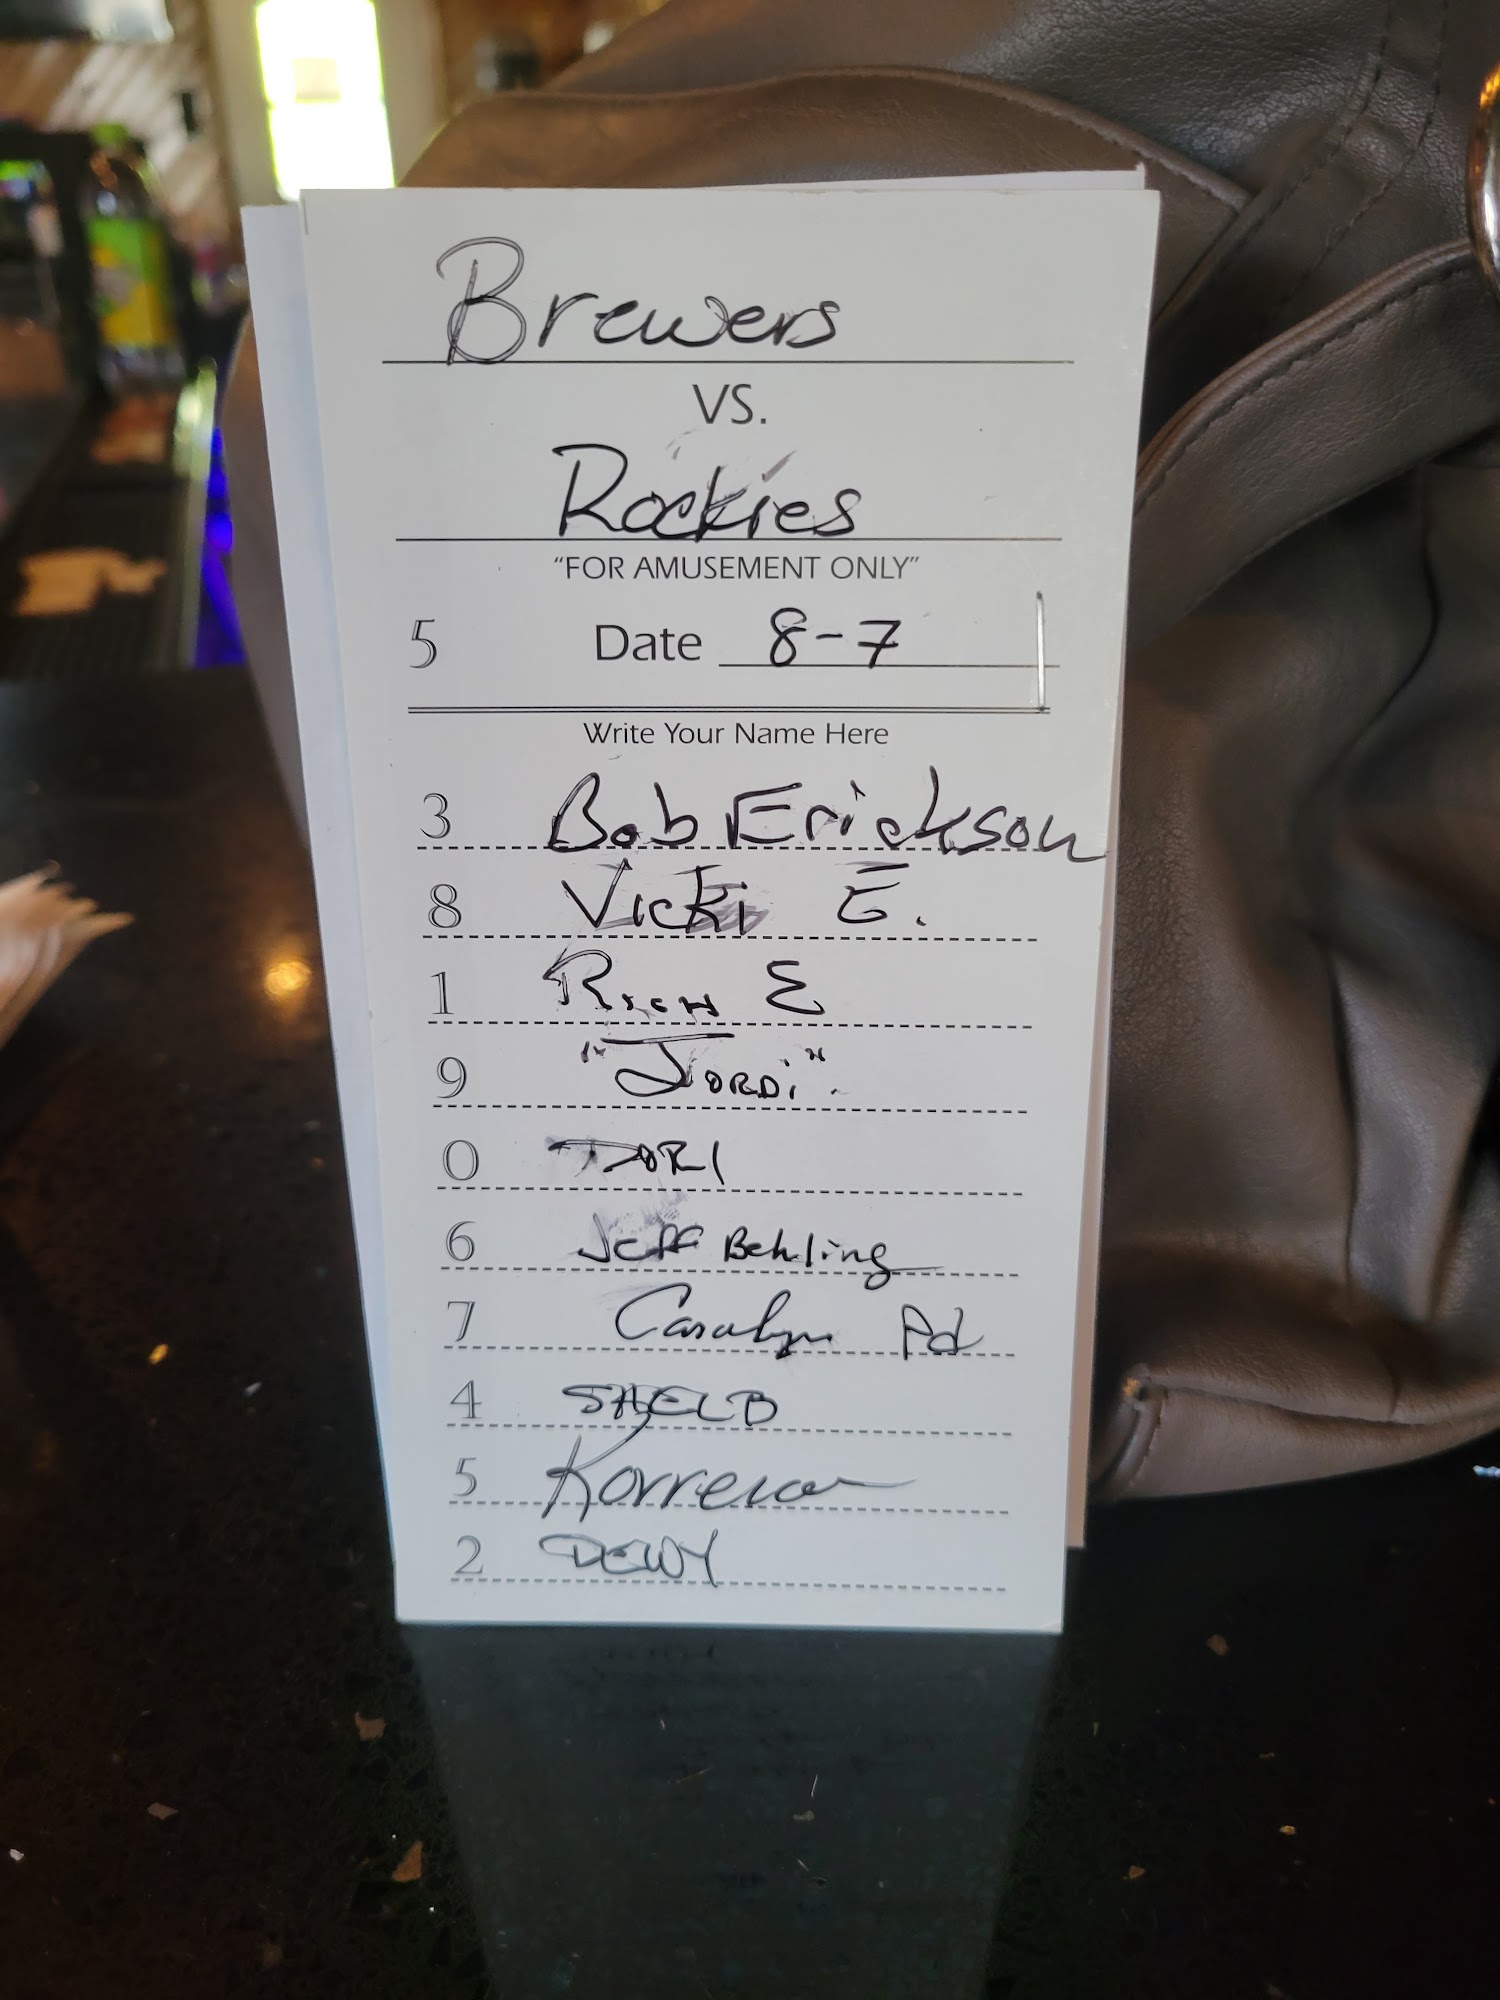 Brewers
VS.
Rockies
"FOR AMUSEMENT ONLY"
5 Date 8-7
Write Your Name Here
3 Bob Erickson
8 Vicki E.
1 Rich E
9 "Jordi".
0 DORI
6 Jeff Behling
7 Carolyn Pd
4 SHELB
5
2 DEWY